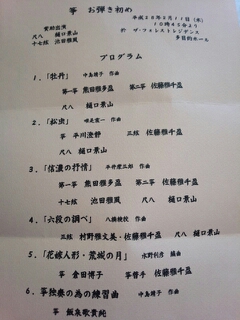 箏　お弾き初め
平成28年2月11日（木）
賛助出演
10時45分より
尺八　樋口景山
於　ザ・フォレストレジデンス
十七絃　池田雅風
多目的ホール
プログラム
1．「牡丹」　中島靖子　作曲
第一箏　熊田雅多盈　第二箏　佐藤雅千盈
2．「松虫」　唯是震一　作曲
箏　平川澄静　三絃　佐藤雅千盈
3．「信濃の抒情」　平井澄三郎　作曲
第一箏　熊田雅多盈　第二箏　佐藤雅千盈
十七絃　池田雅風　尺八　樋口景山
4．「六段の調べ」　八橋検校　作曲
三絃　村野雅文美・佐藤雅千盈　尺八　樋口景山
5．「花嫁人形・荒城の月」　水野利彦　編曲
箏　倉田博子　箏替手　佐藤雅千盈
6．箏独奏の為の練習曲　中島靖子　作曲
箏　飯泉歌貴純